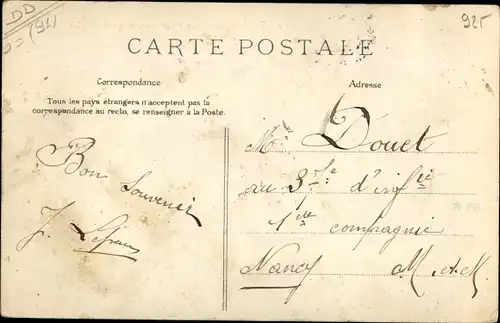 DD
925
CARTE POSTALE
Correspondance
Adresse
Tous les pays étrangers n'acceptent pas la
correspondance au recto, se renseigner à la Poste.
Bon
Souvenir
J.
Mr Douet
au d'infie
1ère compagnie
Nancy M. et M.